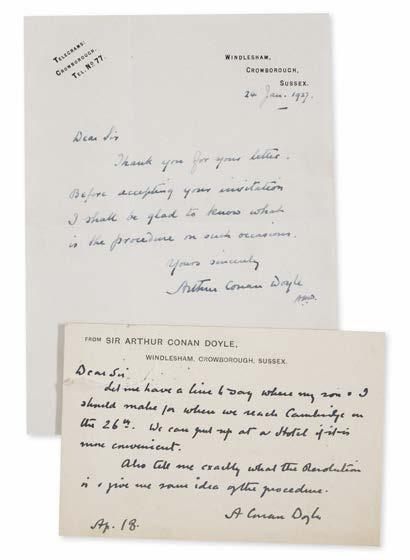 TELEGRAMS:
CROWBOROUGH.
TEL. No. 77.
WINDLESHAM,
CROWBOROUGH,
SUSSEX.
24 Jan. 1927.
Dear Sir
Thank you for your letter.
Before accepting your invitation
I shall be glad to know what
is the procedure on such occasions.
Yours sincerely
Arthur Conan Doyle
FROM SIR ARTHUR CONAN DOYLE,
WINDLESHAM, CROWBOROUGH, SUSSEX.
Dear Sir.
Let me have a line to say where my son & I
should make for when we reach Cambridge on
the 26th. We can put up at a Hotel if it is
more convenient.
Also tell me exactly what the Resolution
is & give me some idea of the procedure.
A Conan Doyle
Ap. 18.